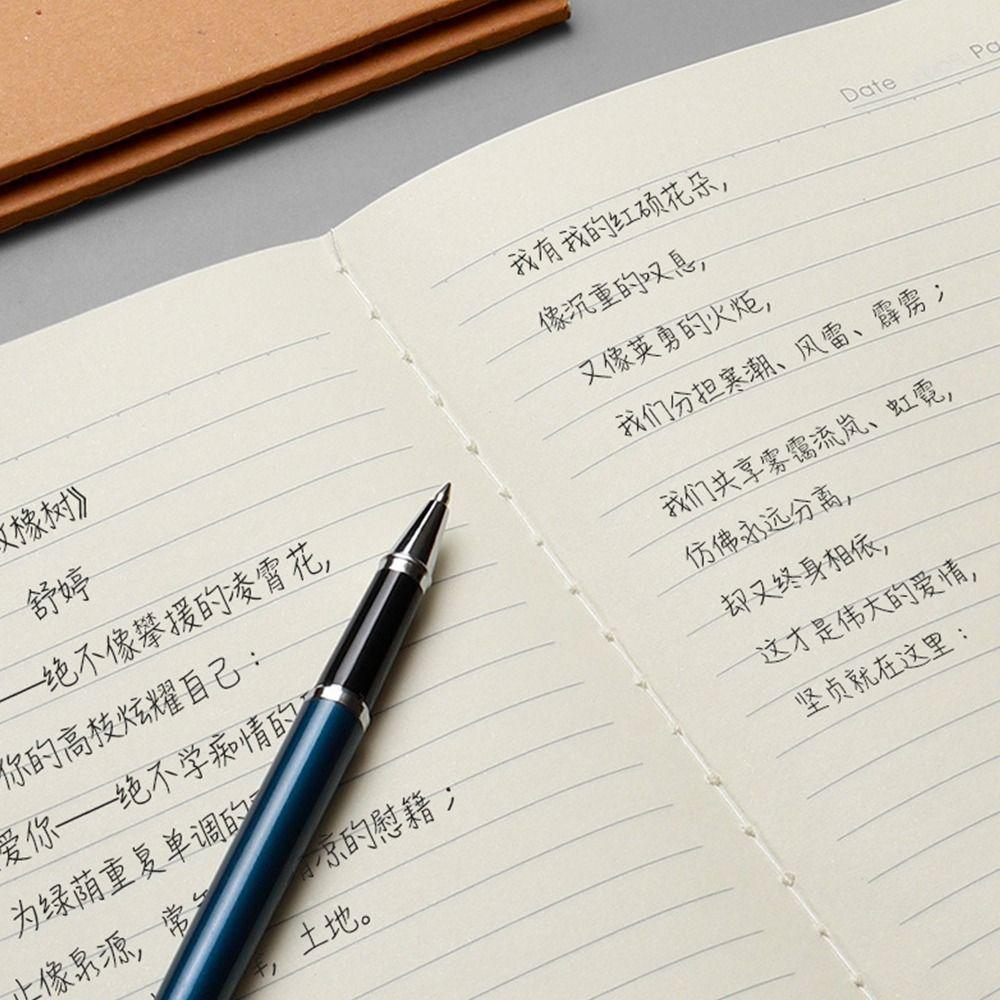 致橡树》
舒婷
——绝不像攀援的凌霄花，
你的高枝炫耀自己：
爱你——绝不学痴情的
为绿荫重复单调的
止像泉源，常年 清凉的慰籍；
土地。
Date Pa
我有我的红硕花朵，
像沉重的叹息，
又像英勇的火炬，
我们分担寒潮、风雷、霹雳；
我们共享雾霭流岚、虹霓，
仿佛永远分离，
却又终身相依，
这才是伟大的爱情，
坚贞就在这里：